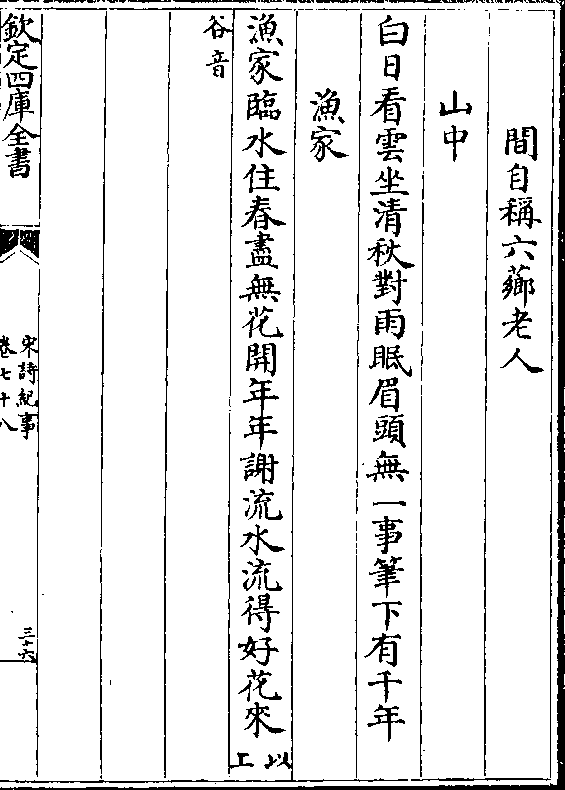 間自稱六薌老人
山中
白日看雲坐清秋對雨眠眉頭無一事筆下有千年
漁家
漁家臨水住春盡無花開年年謝流水流得好花來以上
谷音
欽定四庫全書
宋詩紀事
卷七十八
三十六